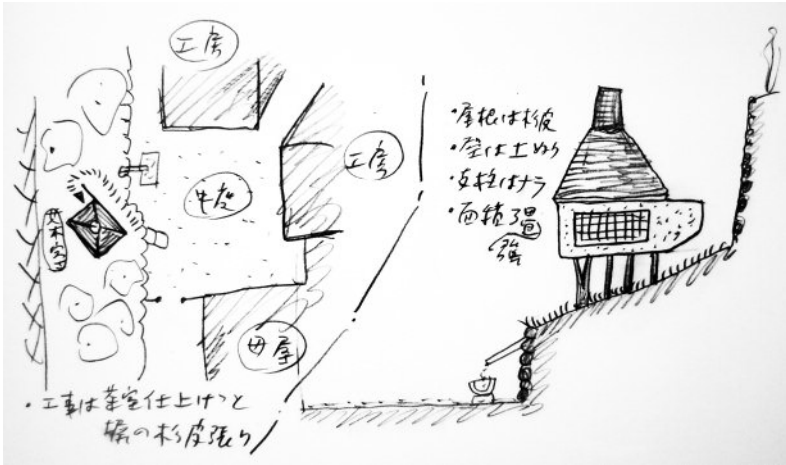 工房
工房
茶室
母屋
・屋根は杉皮
・壁は土ぬり
・支柱はナラ
・面積3畳
強
・工事は茶室仕上げと
の杉皮張り